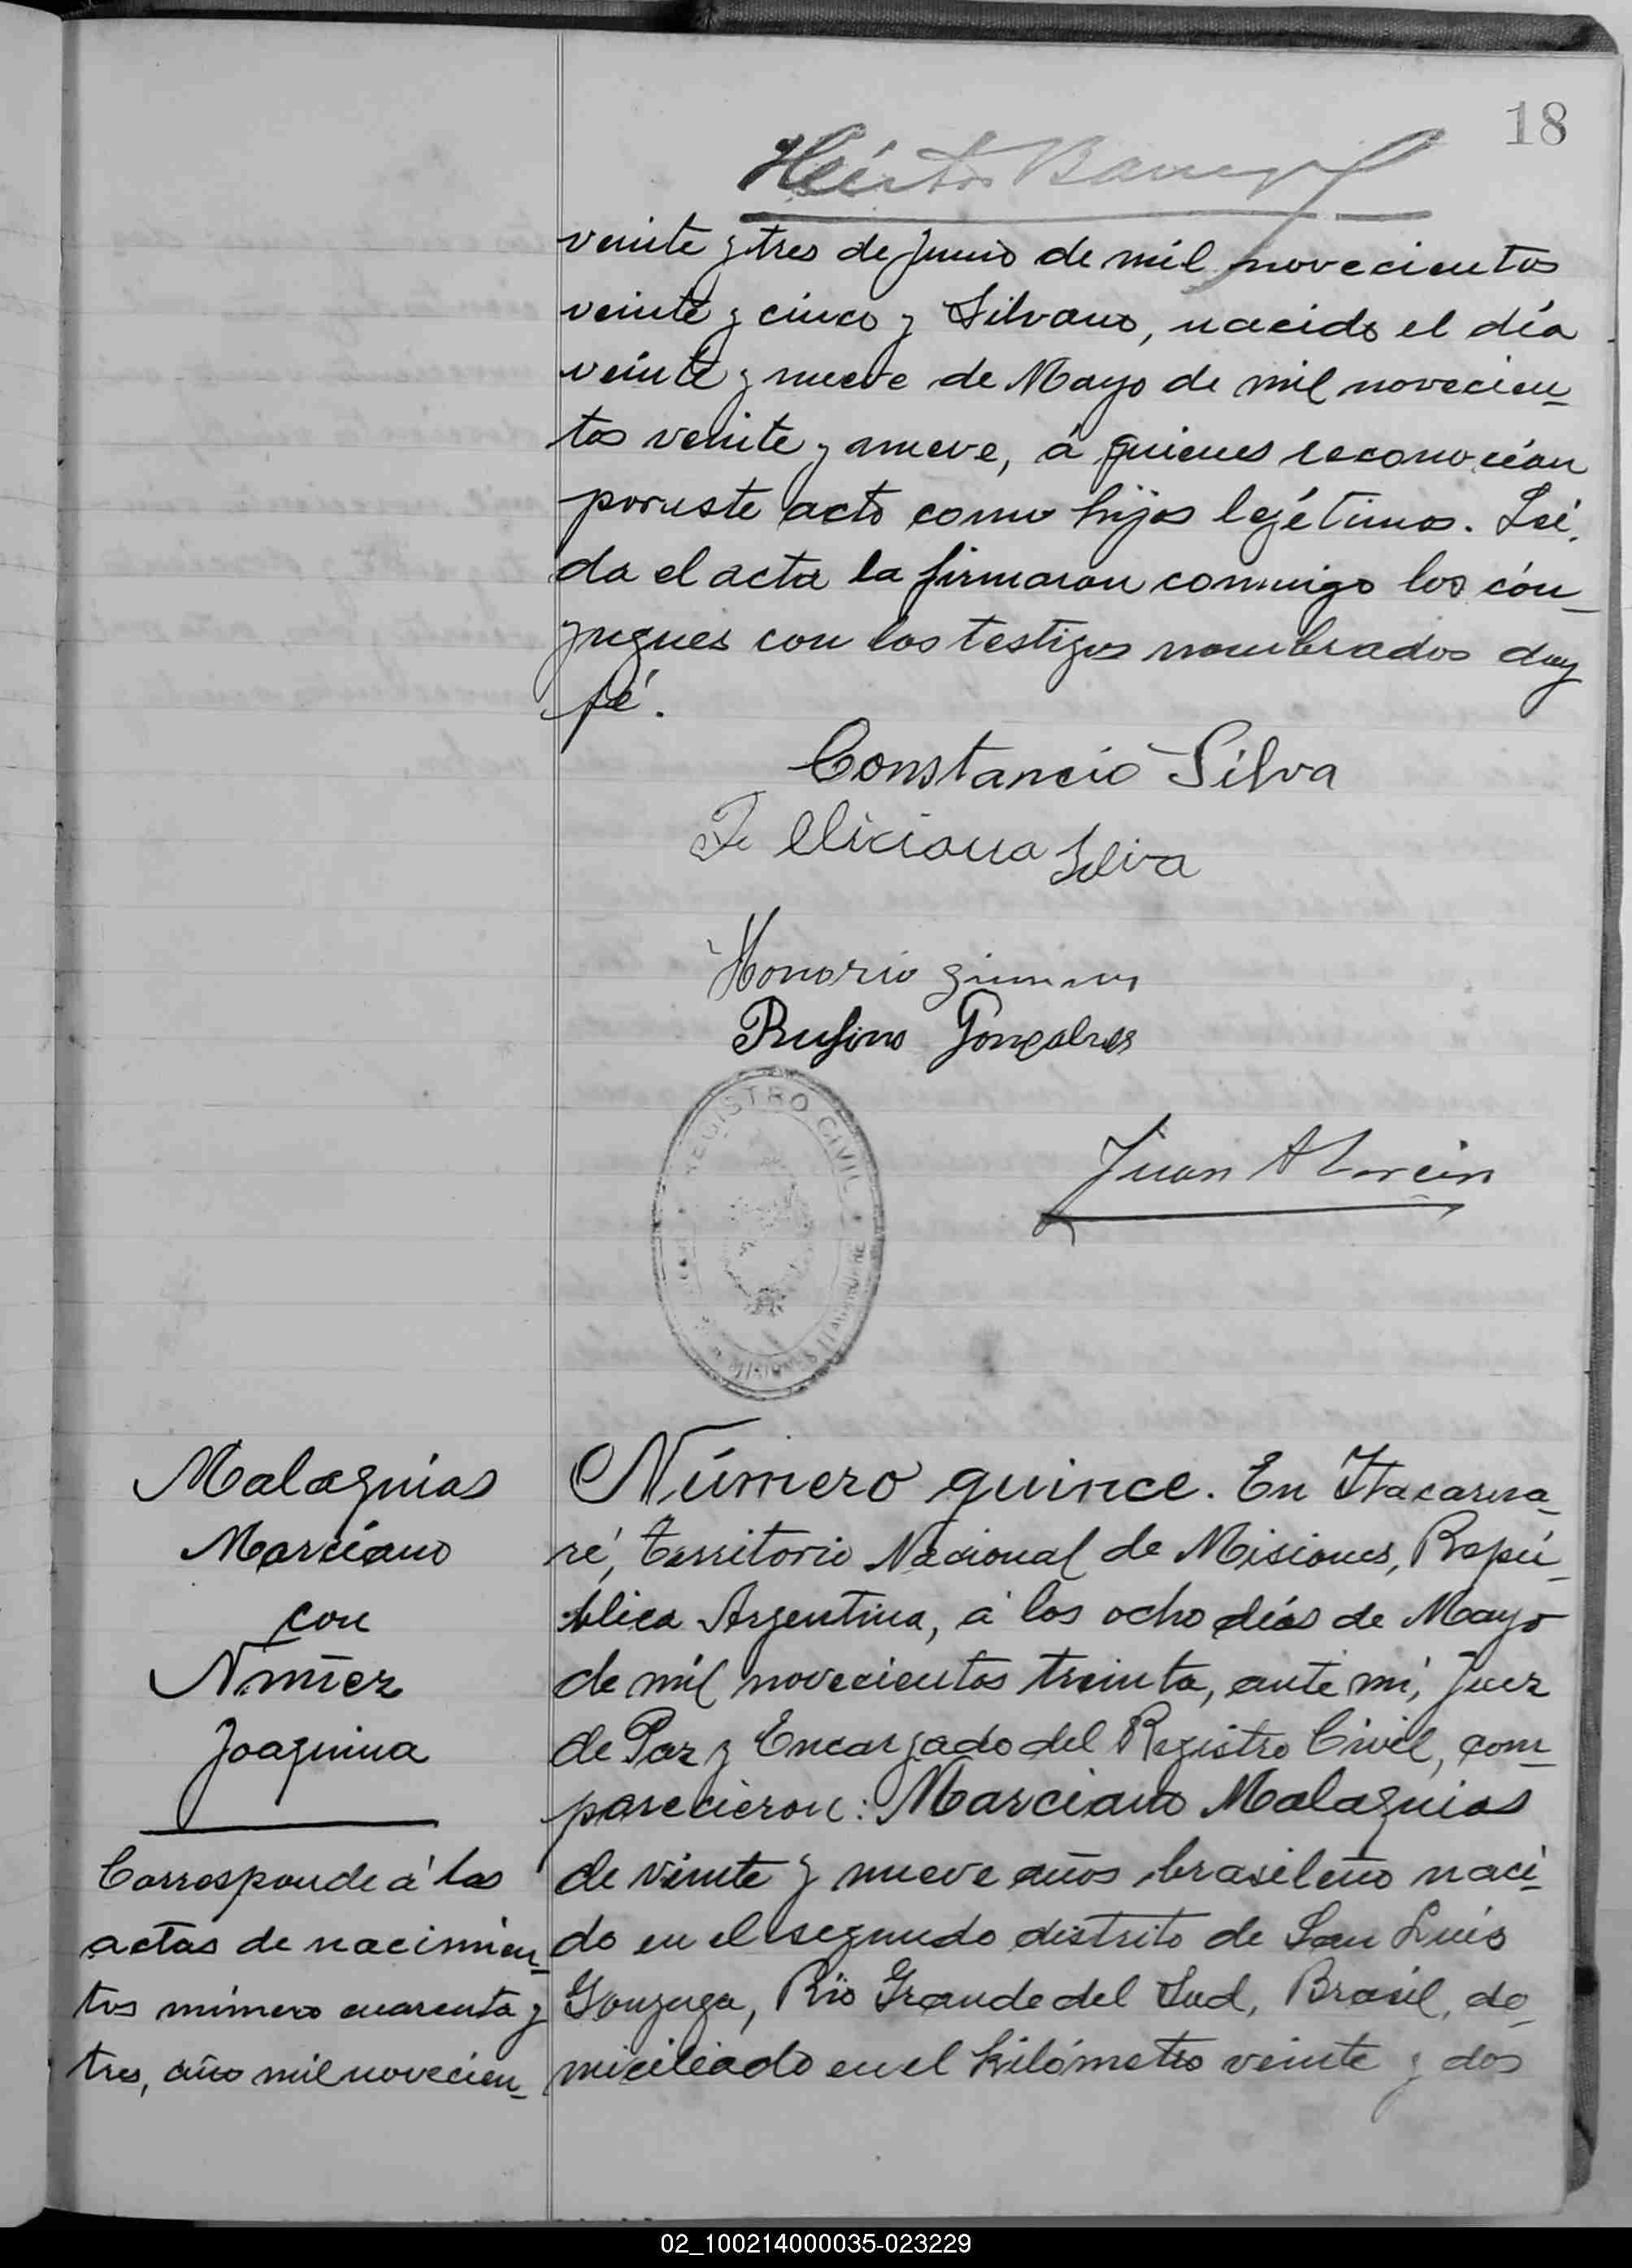 18
Héctor
veinte y tres de Junio de mil novecientos
veinte y cinco y Silvano, nacido el día
veinte y nueve de Mayo de mil novecien-
tos veinte y nueve, á quienes reconocían
por este acto como hijos legétimos. Leí-
da el acta la firmaron conmigo los cón-
yugues con los testigos nombrados doy
fé.
Constancio Silva
Feliciana Silva
Honorio
Rufino Gonçalves
REGISTRO CIVIL
MISIONES
Juan
Malaquias
Marciano
con
Núñez
Joaquina
Corresponde á las
actas de nacimien-
tos número cuarenta y
tres, año mil novecien-
Número quince. En Itacarua-
ré, Territorio Nacional de Misiones, Repú-
blica Argentina, á los ocho días de Mayo
de mil novecientos treinta, ante mí, Juez
de Paz y Encargado del Registro Civil, com-
parecieron: Marciano Malaquias
de veinte y nueve años, brasileño naci-
do en el segundo distrito de San Luis
Gonzaga, Río Grande del Sud, Brasil, do-
miciliado en el kilómetro veinte y dos
02_100214000035-023229